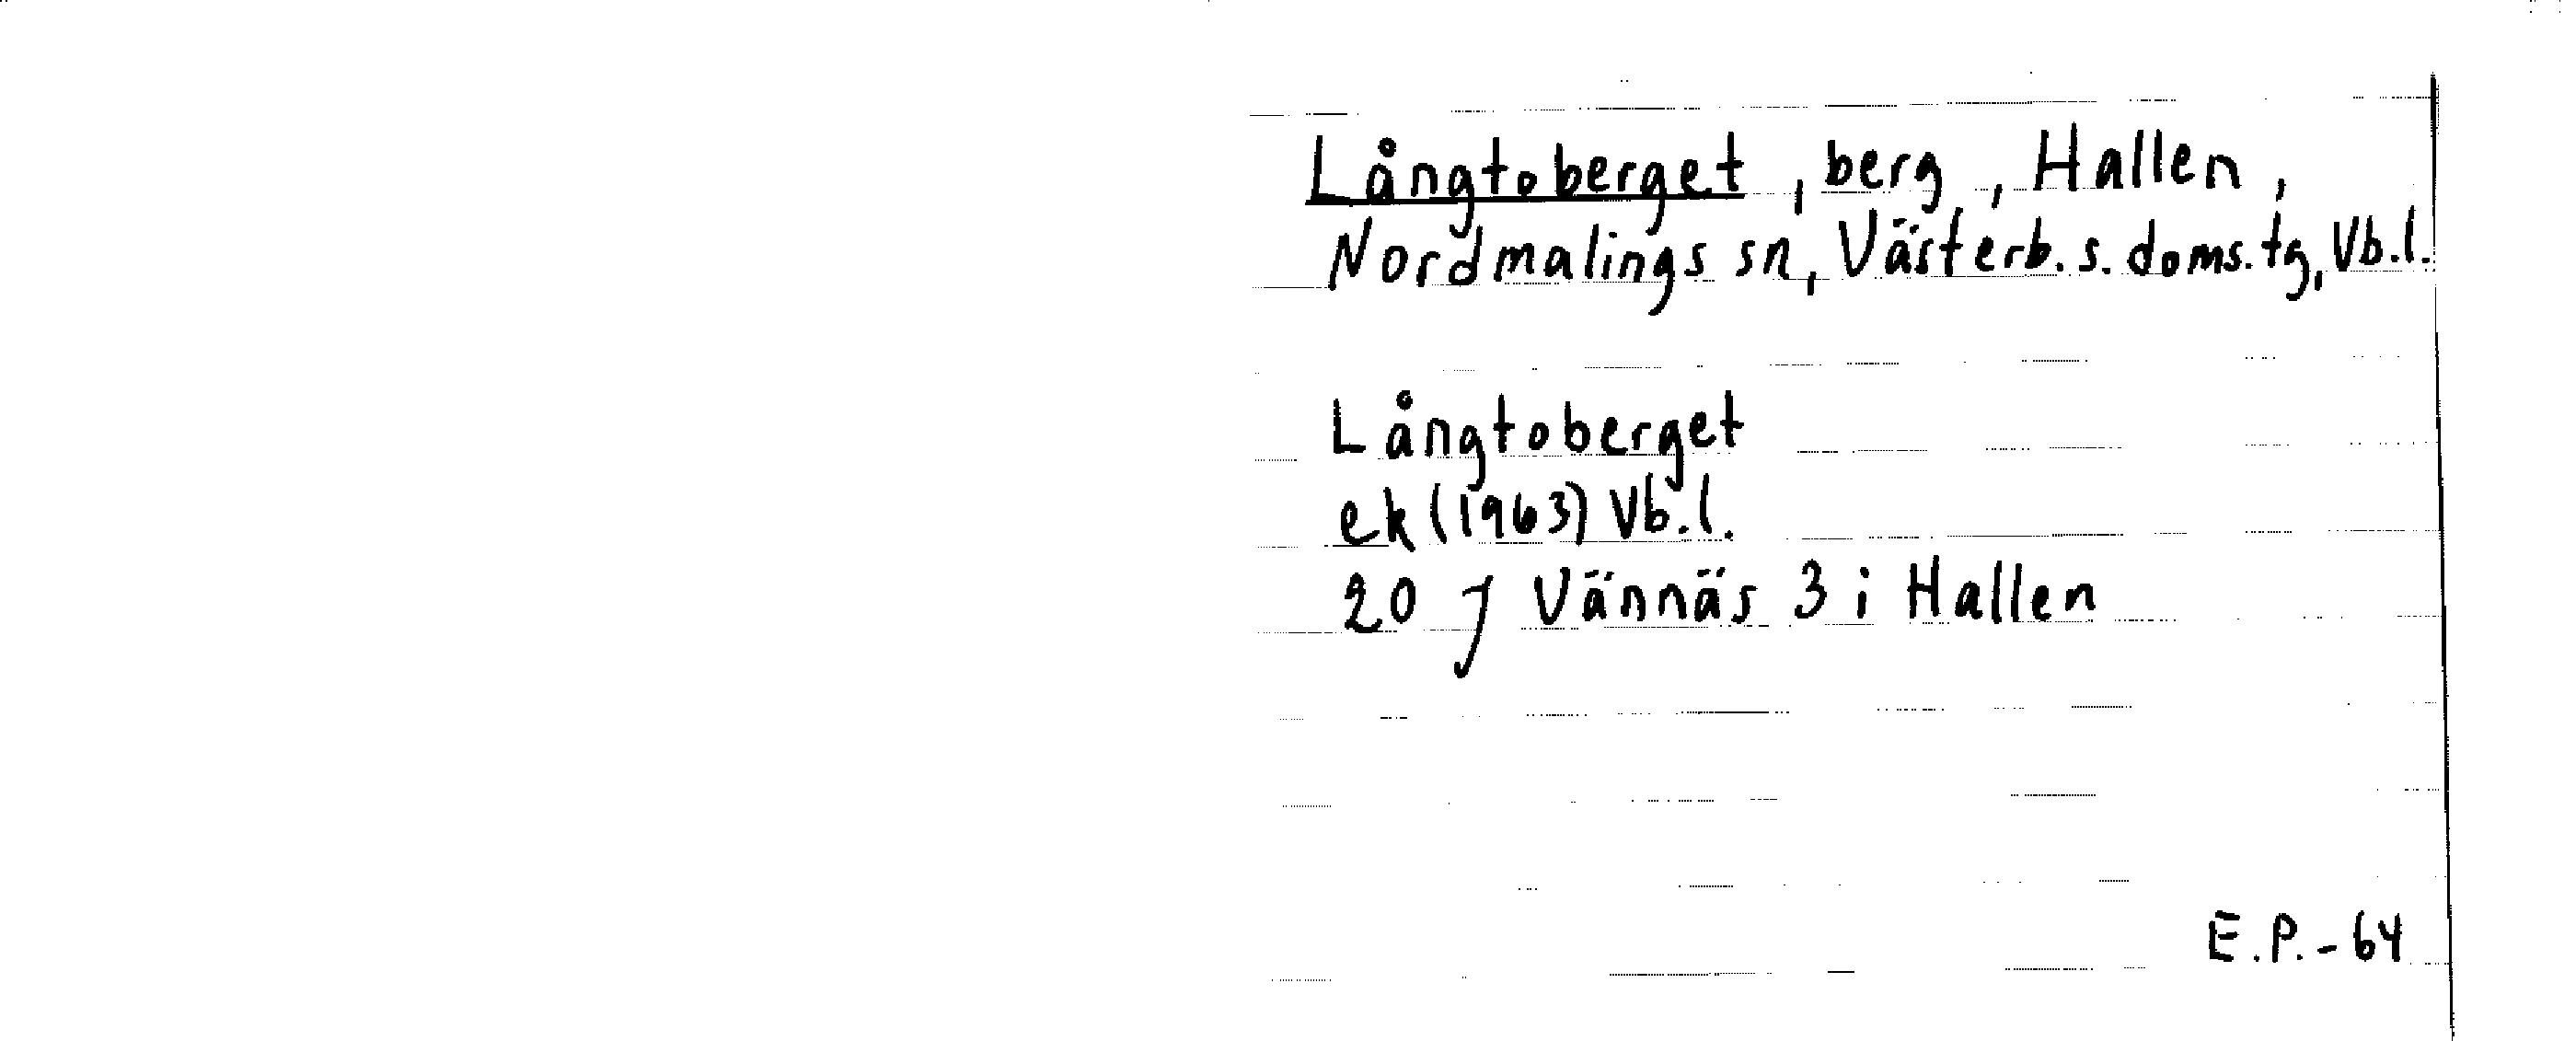 Långtoberget, berg, Hallen,
Nordmalings sn, Västerb. s. doms. tg, Vb.l.
Långtoberget
ek (1963) Vb.l.
20 J Vännäs 3 i Hallen
E.P. - 64